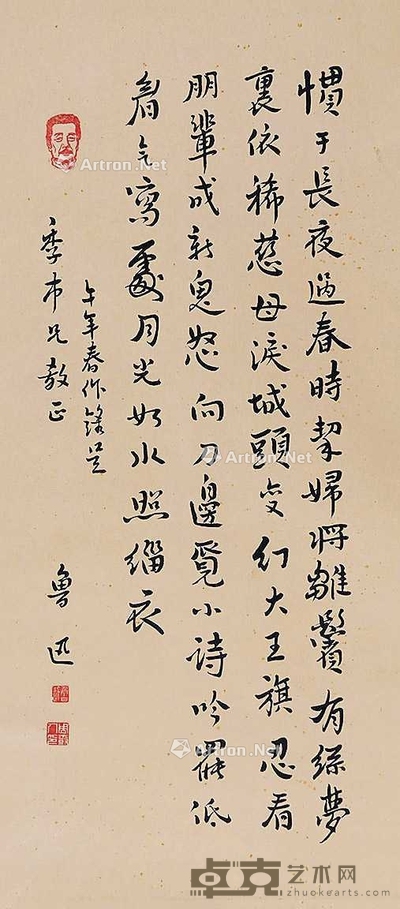 慣于長夜過春時挈婦将雛鬢有絲夢
裏依稀慈母淚城頭变幻大王旗忍看
朋輩成新鬼怒向刀邊覓小詩吟罷低
眉无寫處月光如水照緇衣
午年春作錄呈
季市兄教正
魯迅
Artron.Net
Artron.Net
Artron.Net
卓克艺术网
zhuokearts.com